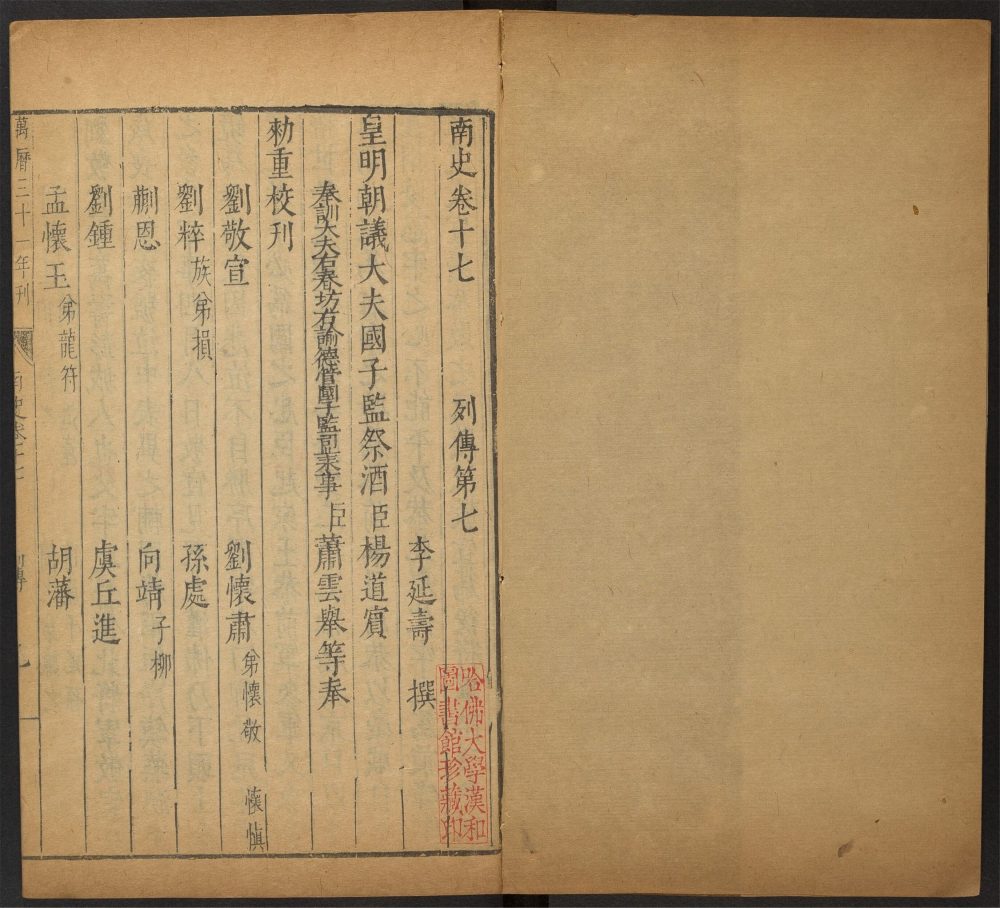 南史卷十七 列傳第七
李延壽 撰
皇明朝議大夫國子監祭酒臣楊道賓
奉訓大夫右春坊右諭德管國子監司業事臣蕭雲舉等奉
勑重校刊
劉敬宣 劉懷肅弟懷敬 懷慎
劉粹族弟損 孫處
蒯恩 向靖子柳
劉鍾 虞丘進
孟懷玉弟龍符 胡藩
萬曆三十一年刊
南史卷十七
列傳
哈佛大學漢和
圖書館珍藏印